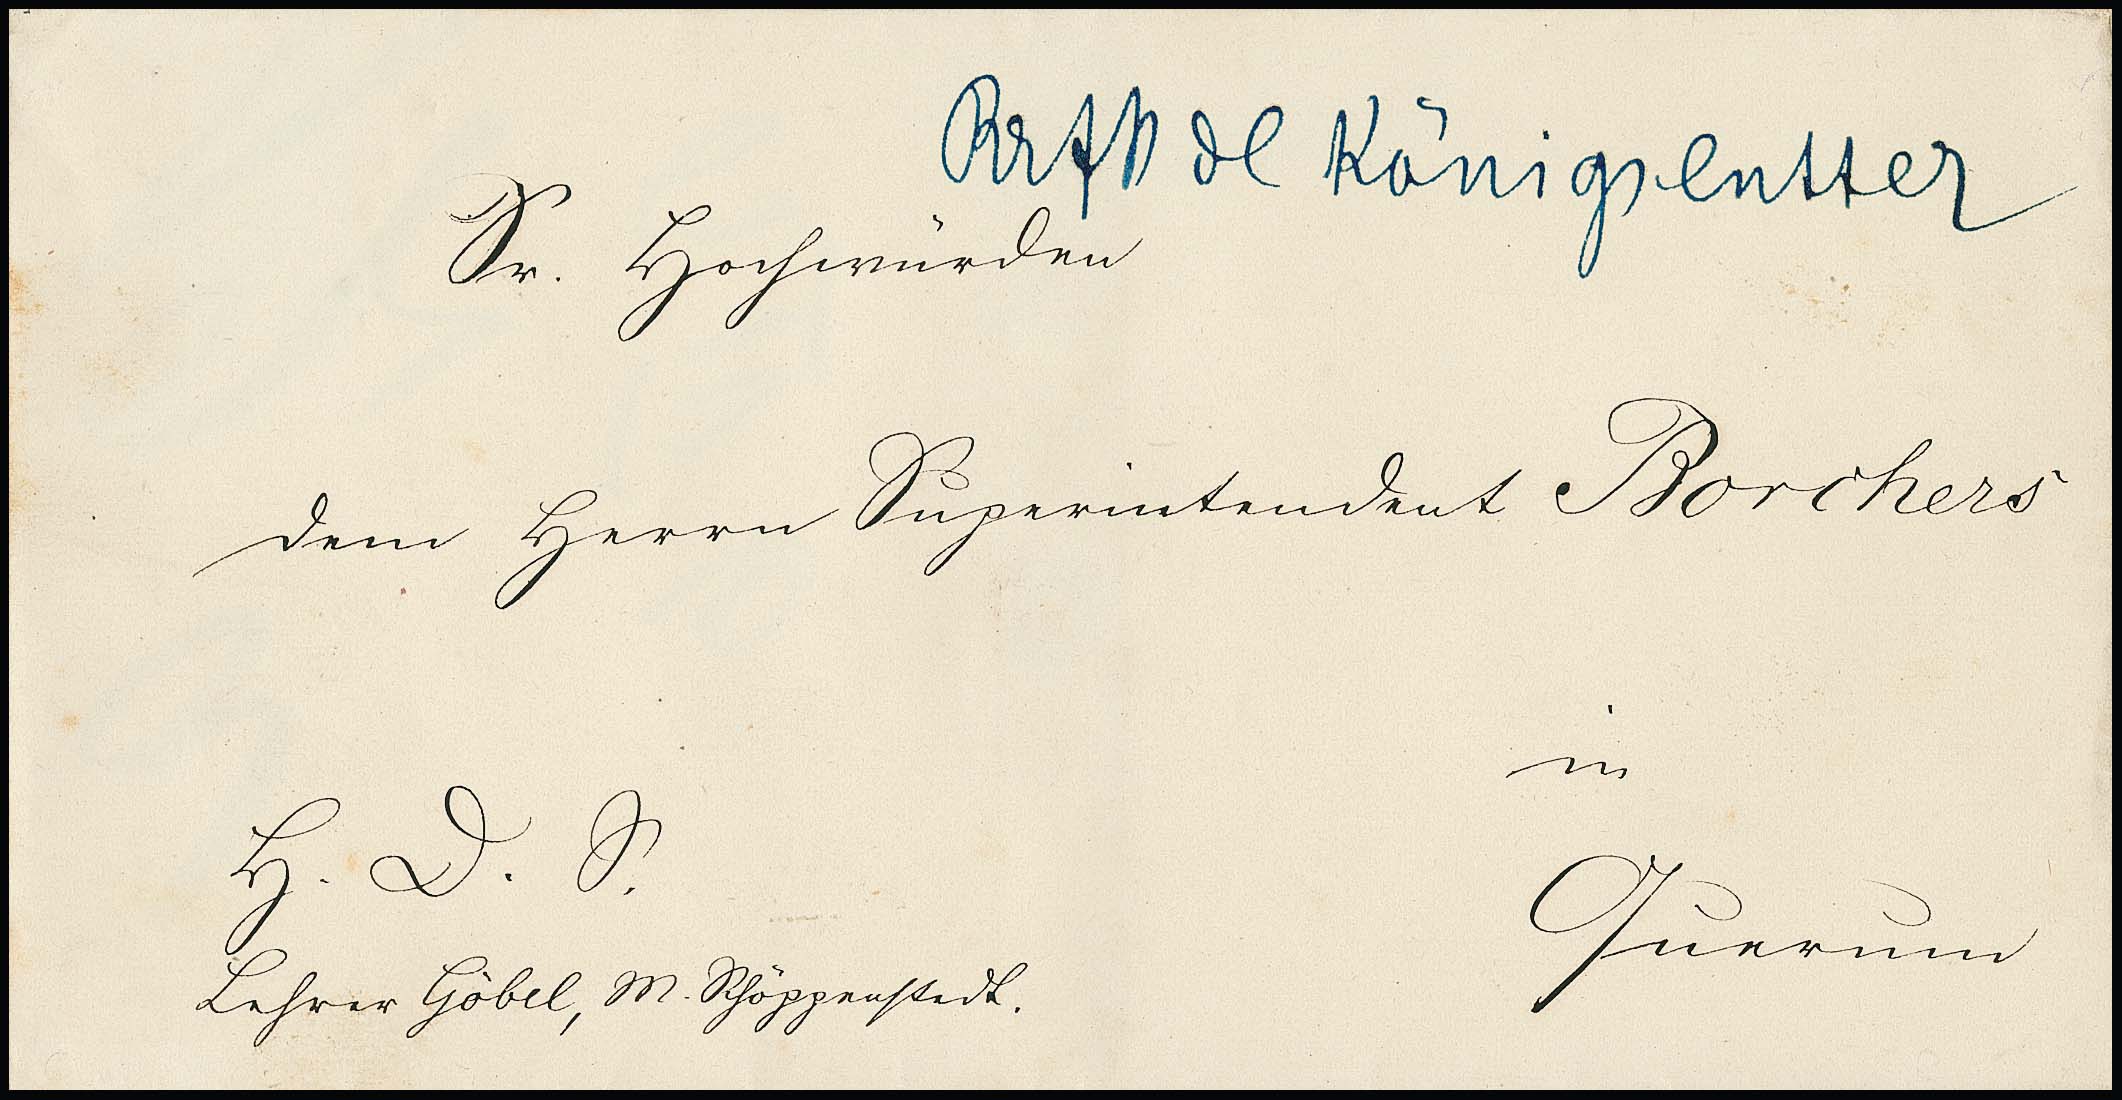 Königslutter
Sr. Hochwürden
dem Herrn Superintendent Borchers
in
H. D. S.
Querum
Lehrer Göbel, M. Schöppenstedt.